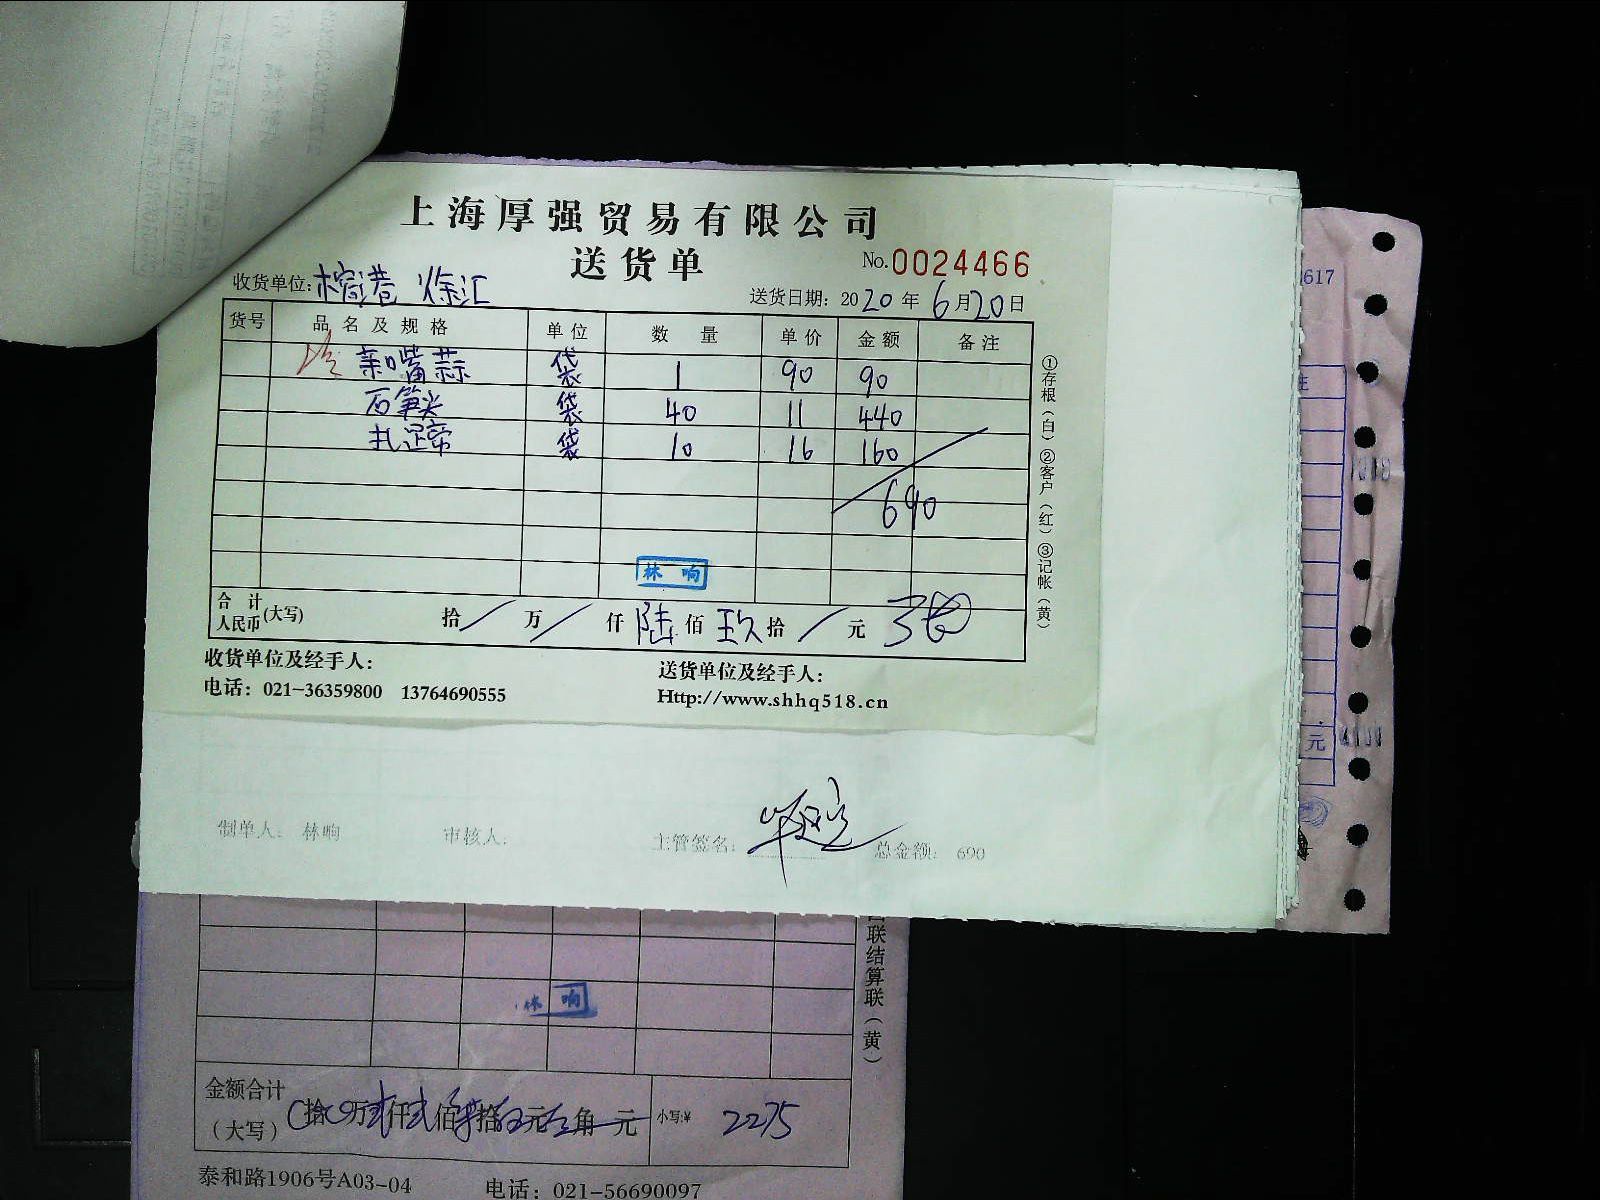 上海厚强贸易有限公司
送货单
No.0024466
收货单位: 榕港 徐汇
送货日期: 2020年6月20日
货号 品名及规格 单位 数量 单价 金额 备注
亲嘴蒜 袋 1 90 90
石笋尖 袋 40 11 440
袋 10 16 160
690
林响
合计人民币(大写) 拾/万/仟陆佰玖拾/元
①存根(白)②客户(红)③记帐(黄)
收货单位及经手人:
送货单位及经手人:
电话: 021-36359800 13764690555
Http://www.shhq518.cn
制单人: 林响 审核人: 主管签名: 总金额: 690
617
元
联结算联(黄)
林响
金额合计(大写) 拾 万 仟 佰 拾 元 角 元 小写:¥ 2275
泰和路1906号A03-04 电话: 021-56690097